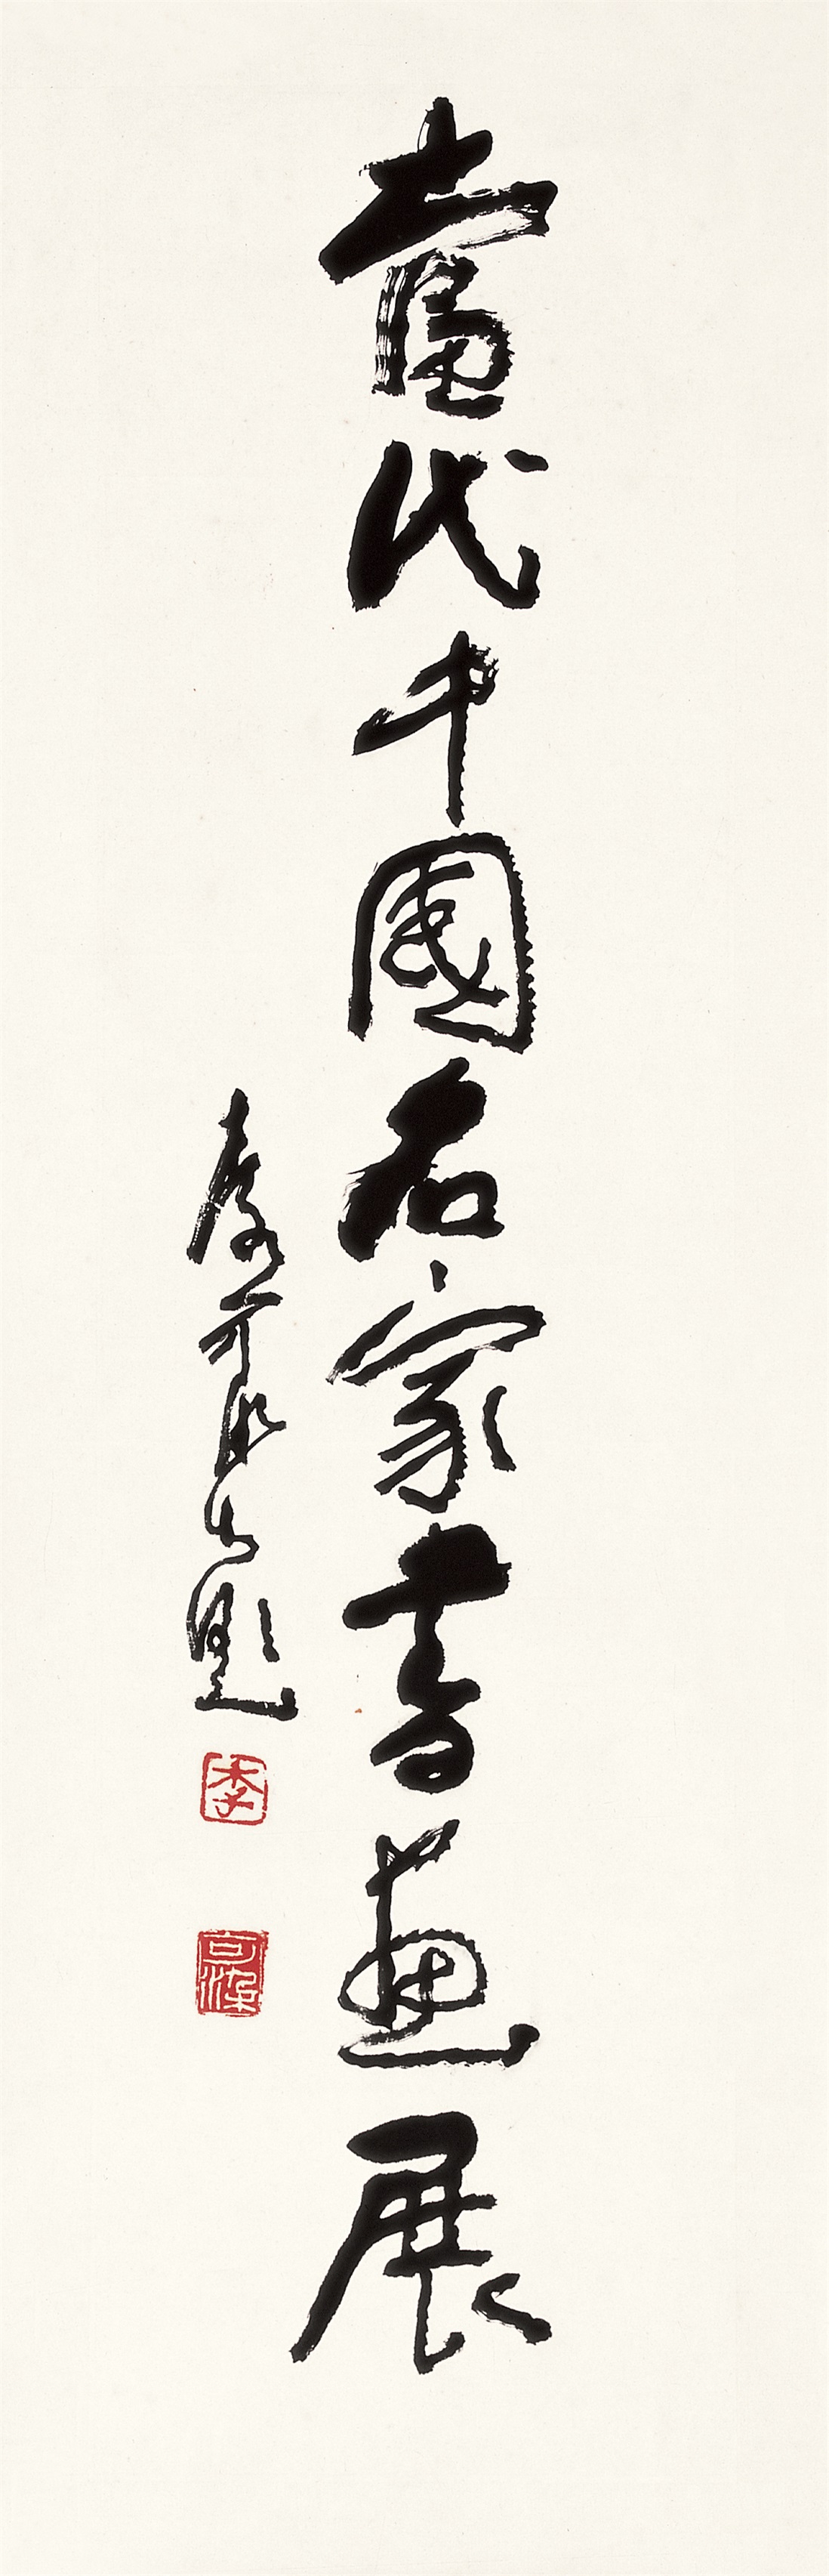 當代中國名家書畫展
李可染題
李
可染